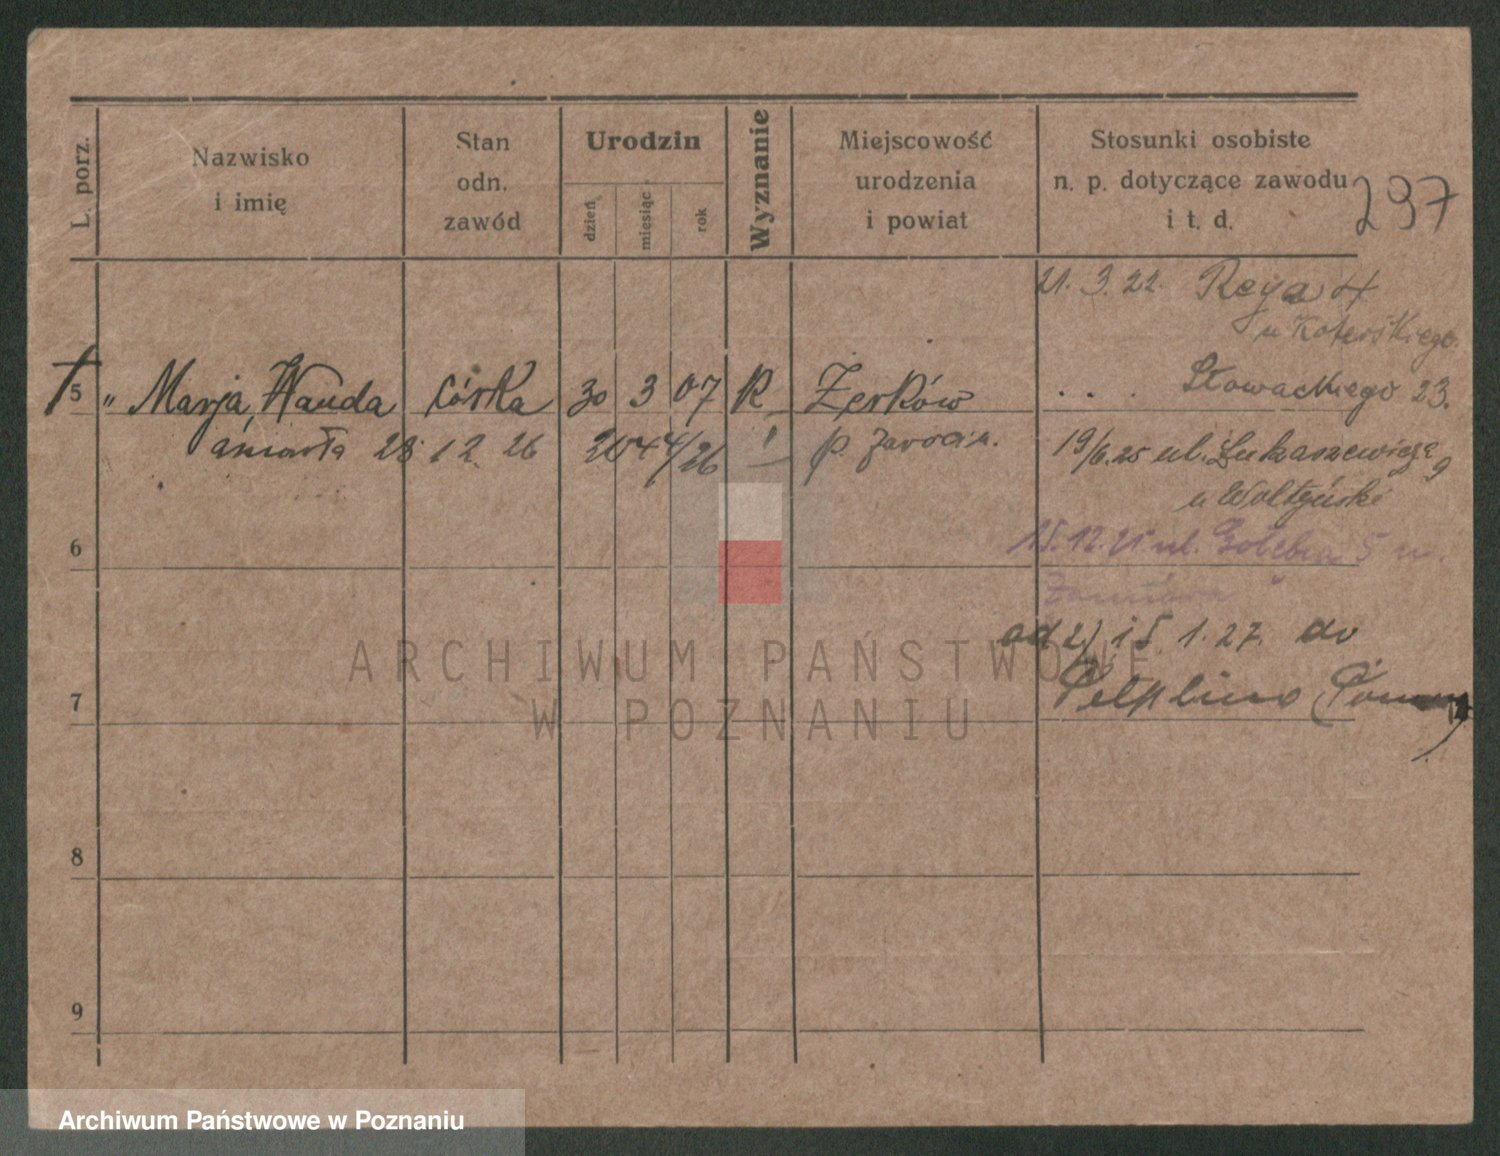 L. porz.
Nazwisko
i imię
Stan
odn.
zawód
Urodzin
dzień
miesiąc
rok
Wyznanie
Miejscowość
urodzenia
i powiat
Stosunki osobiste
n. p. dotyczące zawodu
i t. d.
297
21. 3. 22. Reya 4
u Koterskiego
Słowackiego 23.
5 " Marja Wanda córka 30 3 07 R Żerków
28 12 26 2044/26 p. Jarocin.
19/6.25 ul. Łukaszewicza 9
u Wołyński
6
15.12.25 ul. Gołębia 5 u.
od 15.1.27. do
7
Pelplina
8
9
ARCHIWUM PAŃSTWOWE
W POZNANIU
Archiwum Państwowe w Poznaniu